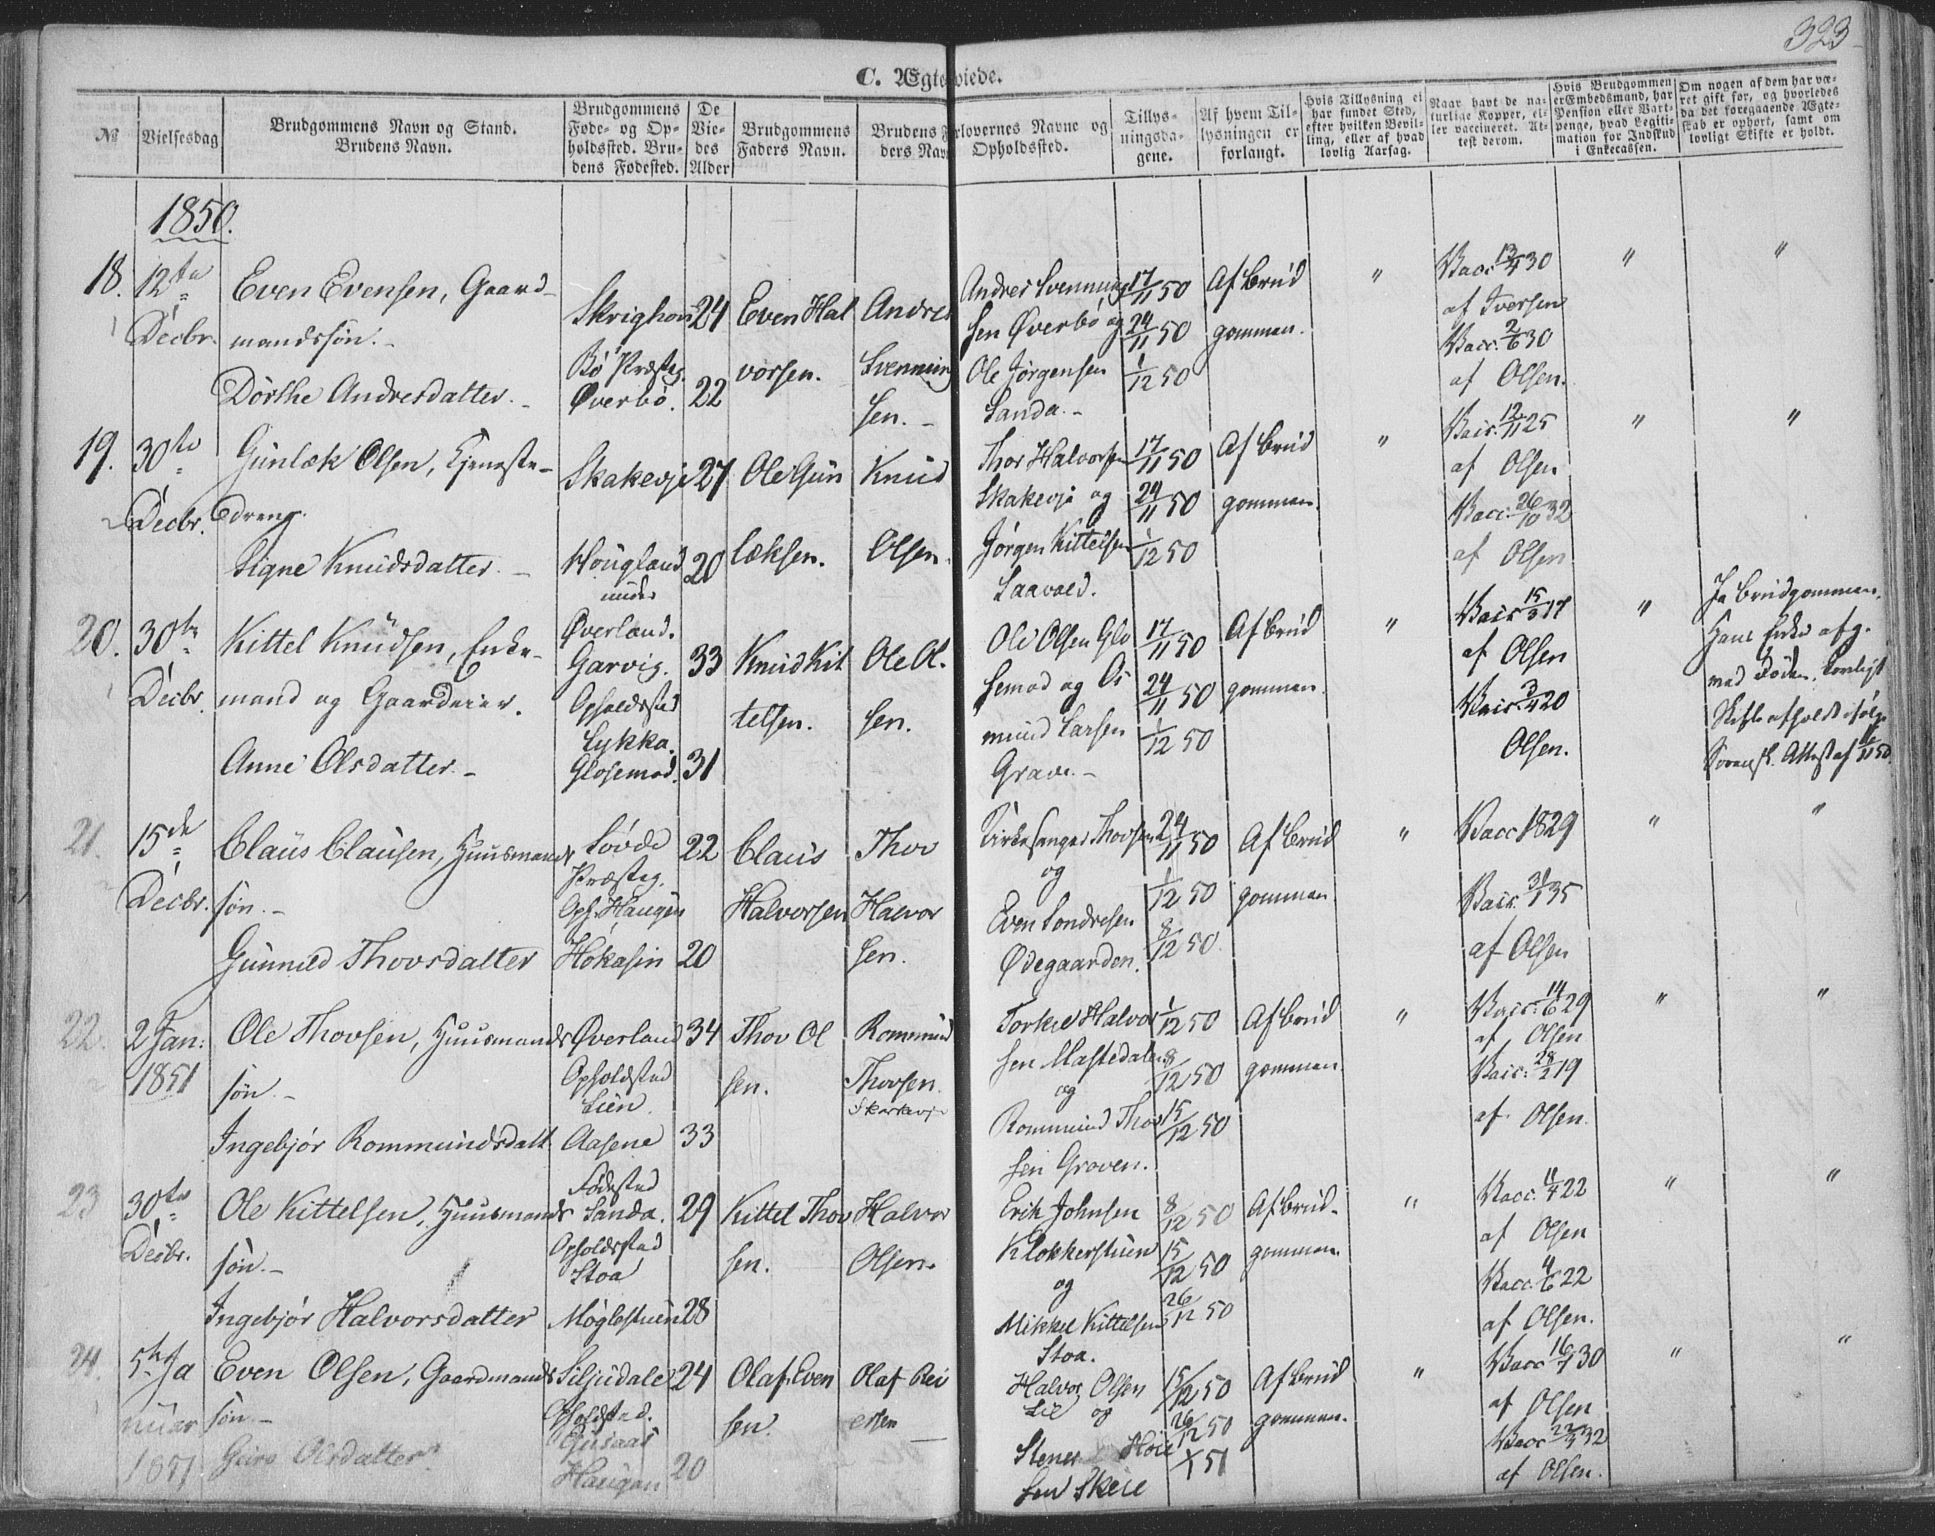 323
C. Ægteviede.
№
Vielsesdag
Brudgommens Navn og Stand.
Brudens Navn.
Brudgommens
Føde- og Op-
holdssted. Bru-
dens Fødested.
De
Vie-
des
Alder
Brudgommens
Faders Navn.
Brudens
ders Navn
Forlovernes Navne og
Opholdssted.
Tillys-
ningsda-
gene.
Af hvem Til-
lysningen er
forlangt.
Hvis Tillysning ei
har fundet Sted,
efter hvilken Bevil-
ling, eller af hvad
lovlig Aarsag.
Naar havt de na-
turlige Kopper, el-
ler vaccineret. At-
test derom.
Hvis Brudgommen
er Embedsmand, har
Pension eller Vart-
penge, hvad Legiti-
mation for Indskud
i Enkecassen.
Om nogen af dem har væ-
ret gift før, og hvorledes
da det foregaaende Ægte-
skab er ophørt, samt om
lovligt Skifte er holdt.
1850.
18. 12te Decbr.
Even Evensen, Gaard-
mandssøn.-
Dorthe Andresdatter.-
Bø Præsteg.
Øverbø.
24
22
Even Hal
vorsen.
Andres
Svenning
sen.-
Andres Svenning
sen Øverbø og
Ole Jørgensen
Sanda.-
17/11 50
24/11 50
1/12 50
Af Brud
gommen.
"
Vacc 13/4 30
af Iversen
Vacc. 2/6 30
af Olsen.
"
"
19. 30te Decbr.
Gunlæk Olsen, Tjeneste-
dreng.
Signe Knudsdatter.-
Skakevje
Hougland
under
Øverland.
27
20
Ole Gun
læksen.
Knud
Olsen.
Thor Halvorsen
Skakevje og
Jørgen Kittelsen
Saavold.
17/11 50
24/11 50
1/12 50
Af Brud
gommen.
"
Vacc. 12/11 25
af Olsen
Vacc. 26/10 32
af Olsen
"
"
20. 30te Decbr.
Kittel Knudsen, Enke-
mand og Gaardeier.
Anne Olsdatter.-
Garvig.
Opholdssted
Lykka.
Glosemod.
33
31
Knud Kit
telsen.
Ole Ol.
sen.
Ole Olsen Glo
semod og Os
mund Larsen
Grave.-
17/11 50
24/11 50
1/12 50
Af Brud
gommen.
"
af Olsen
Vacc. 3/4 20
Olsen.
"
Ja Brudgommen.
Hans Enke afg.
ved Døden. Lovligt
Skifte afholdt ifølge
21. 15de Decbr.
Claus Clausen, Huusmands
søn.-
Gunnild Thovsdatter
Lovde
Præsteg.
Oph. Haugen
Hókasin
22
20
Claus
Halvorsen
Thov
Halvor
sen.
Kirkesanger Thovsen
og
Even Sondresen
Ødegaarden.
24/11 50
1/12 50
8/12 50.
Af Brud
gommen.
"
Vacc 1829
Vacc. 31/1 35
af Olsen
"
"
22. 2 Jan:
1851
Ole Thovsen, Huusmands
søn.-
Ingebjør Rommundsdatt.
Øverland
Opholdssted
Lien.
Aasene
34
33
Thov Ol
sen.
Rommund
Thovsen.
Torkil Halvor
sen Mastedalen
og
Rommund Thov
sen Graven.
1/12 50
8/12 50
15/12 50
Af Brud
gommen.
"
Vacc. 14/6 29
af Olsen
Vacc. 28/2 19
af Olsen.
"
"
23 30te Decbr.
Ole Kittelsen, Huusmands
søn.-
Ingebjør Halvorsdatter
Fødested
Sanda.
Opholdssted
Stoa
Møglestuen
29
28
Kittel Thov
sen.
Halvor
Olsen.
Erik Johnsen
Klokkerstuen
og
Mikkel Kittelsen
Stoa.
8/12 50
15/12 50
26/12 50
Af Brud-
gommen.
"
af Olsen
af Olsen.
"
"
24. 5te Ja
nuar
1851
Even Olsen, Gaardmands
søn.-
Siljudalen
Opholdssted.
Haugan
24
20
Olaf Even
sen.
Olaf
Halvor Olsen
Lie og
Stener
sen Skeie
15/12 50
26/12 50
Af Brud
gommen.
"
Vacc 16/7 30
af Olsen
af Olsen.
"
"